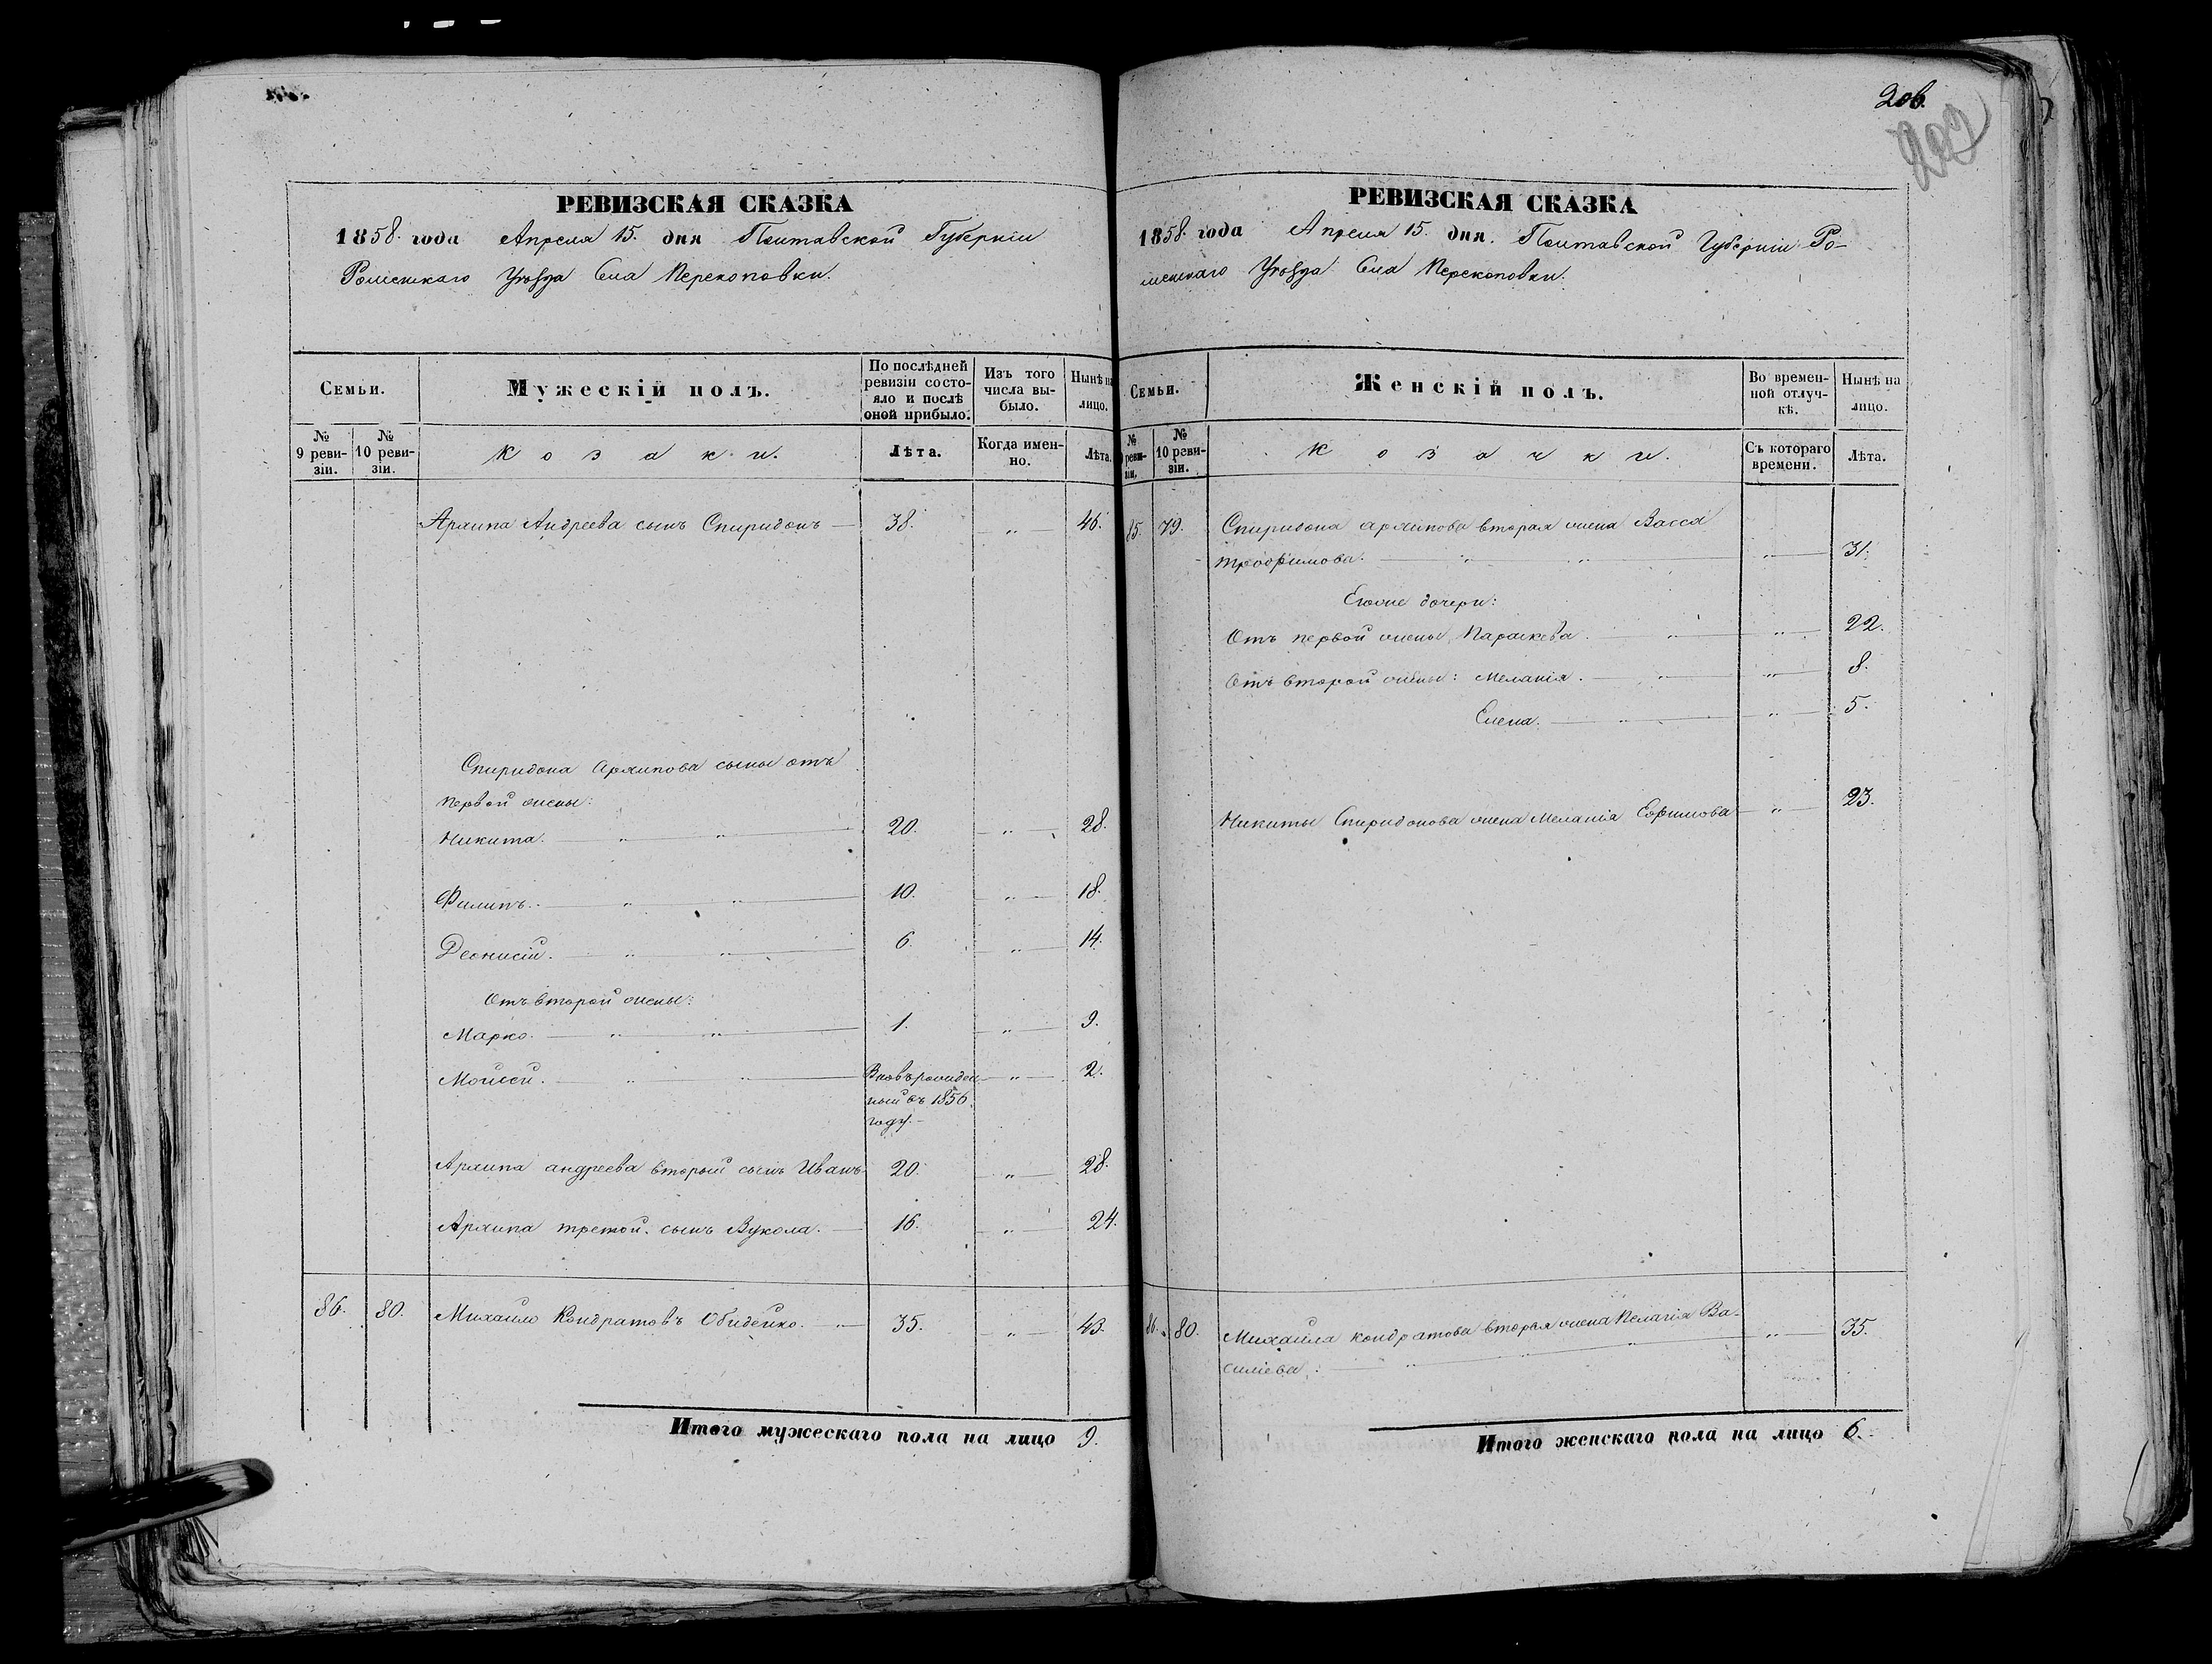 РЕВИЗСКАЯ СКАЗКА
1858. года Апреля 15. дня Полтавской Губернiи
Роменскаго Уѣзда Села Перекоповки.
Семьи.
Мужескiй полъ.
По послѣдней ревизiи состо-
яло и послѣ
оной прибыло.
Изъ того
числа вы-
было.
Нынѣ на
лицо.
№
9 реви-
зiи.
№
10 реви-
зiи.
Козаки.
Лѣта.
Когда имен-
но.
Лѣта.
Архипа Андреева сынъ Спиридонъ — 38. „ — 46.
Спиридона Архипова сыны отъ
первой жены:
Никита. — „ „ — 20. — „ — 28.
Филипъ. — „ „ — 10. — „ — 18.
Деонисiй. — „ „ — 6. — „ — 14.
Отъ второй жены:
Марко. — „ „ — 1. — „ — 9.
Мойсей. — „ „ — Вновърожден — „ — 2.
ный въ 1856
году. –
Архипа андреева вторый сынъ Иванъ 20. — „ — 28.
Архипа третой. сынъ Вукола. — 16. — „ — 24.
86. 80. Михайло Кондратовъ Обидейко. — „ 35. — „ — 43.
Итого мужескаго пола на лицо 9.
206.
202
РЕВИЗСКАЯ СКАЗКА
1858. года Апреля 15. дня. Полтавской Губернiи Ро-
менскаго Уѣзда Села Перекоповки.
Семьи.
Женскiй полъ.
Во времен-
ной отлуч-
кѣ.
Нынѣ на
лицо.
№
реви-
зiи.
№
10 реви-
зiи.
Козачки.
Съ котораго
времени.
Лѣта.
85. 79. Спиридона архипова вторая жена Васса
трофимова. — „ „ — „ — 31.
Егоже дочери:
Отъ первой жены, Параскева. „ — „ — 22.
Отъ второй жены: Меланiя. — „ — „ — 8.
Елена. — „ — „ — 5.
Никиты Спиридонова жена Меланiя Ефимова — „ — 23.
86. 80. Михайла кондратова вторая жена Пелагiя Ва-
силiева: — „ „ „ — „ — 35.
Итого женскаго пола на лицо 6.